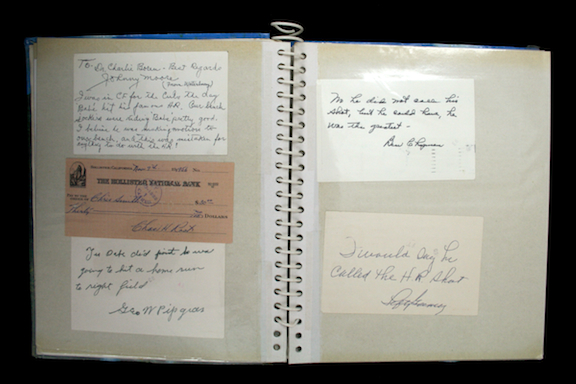 To Dr Charlie Boren - Best Regards
Johnny Moore
I was in CF for the Cubs the day
Babe hit his famous HR. Our bench
jockeys were riding Babe pretty good.
I believe he was making motions to
our bench, and this was mistaken for
to do with the HR!
THE HOLLISTER NATIONAL BANK
Chris Smith
Thirty
DOLLARS
Chas H. Root
Yes Babe did point he was
going to hit a home run
to right field
Geo W Pipgras
No he did not call his
shot, but he could have, he
was the greatest -
Ben Chapman
I would say he
Called the H.R. Shot